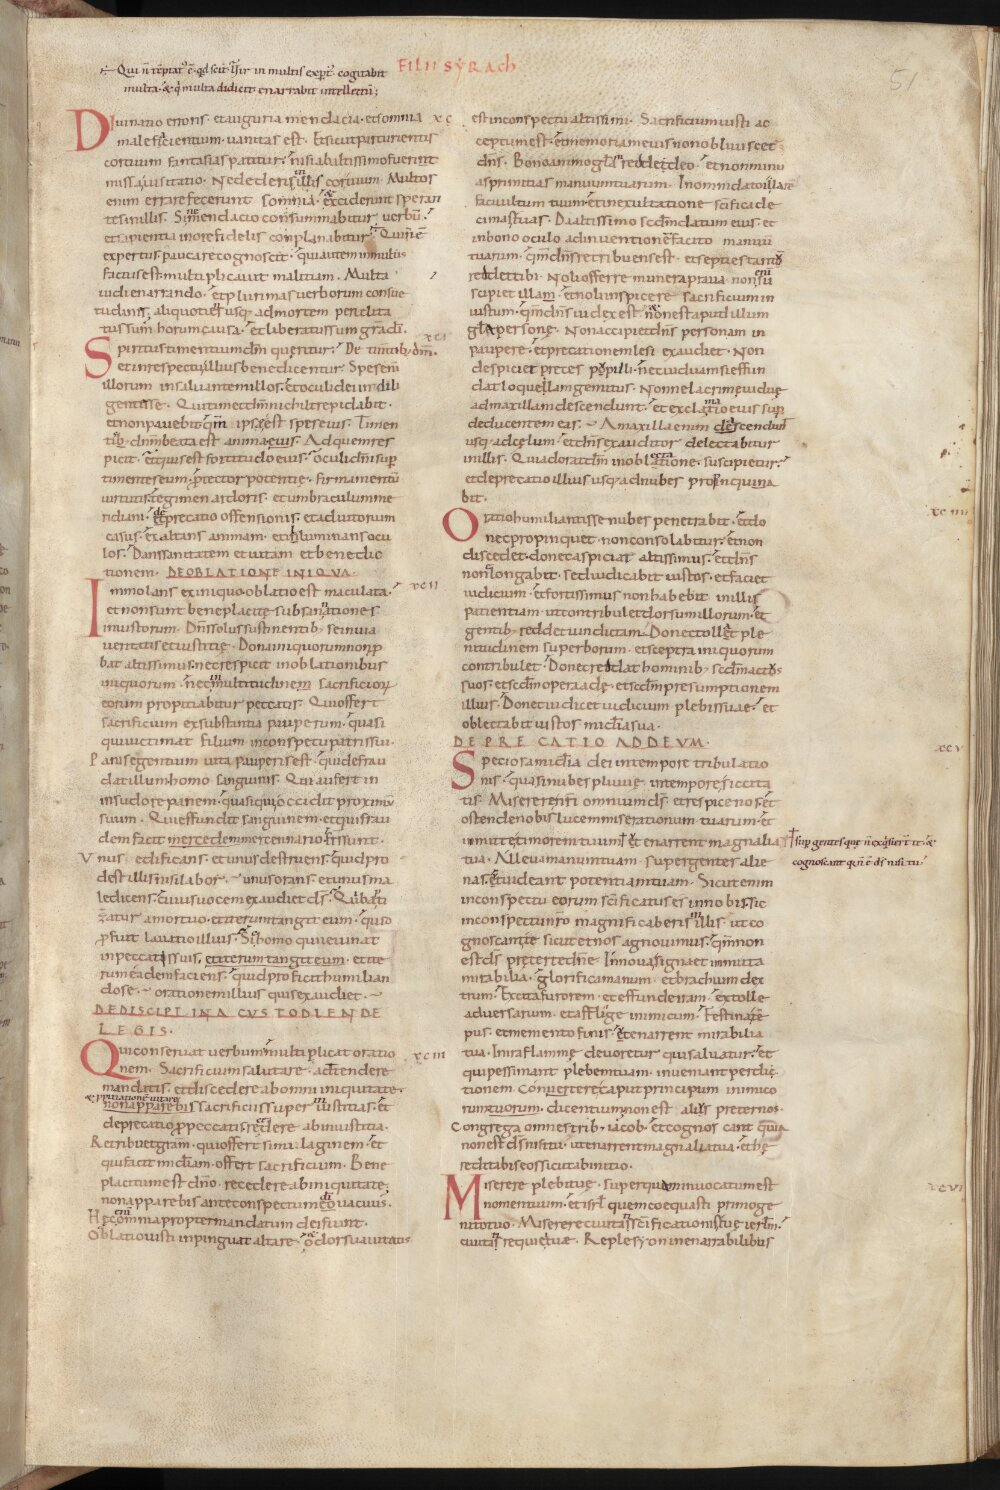 FILII SYRACH
51
Qui n̄ tēptat' ē. qd scit. Uir in multis exp̄t' cogitabit
multa. & q̄ multa didicit enarrabit intellectū;
Diuinatio erroris. et auguria mendacia. et somnia xc
malefacientium. uanitas est. Et sicut parturientis
cor tuum fantasias patitur. nisi ab altissimo fuerint
missa uisitatio. Ne dederis in illis cor tuum. Multos
enim errare fecerunt somnia. & exciderunt speran
tes in illis. Sine mendacio consummabitur uerbū.
et sapientia in ore fidelis complanabitur. Qui n̄ ē
expertus pauca recognoscit. qui autem in multis
factus est multiplicauit malitiam. Multa
uidi enarrando. et plurimas uerborum consue
tudinis. aliquotiens usq; ad mortem periclita
tus sum horum causa. et liberatus sum gratia dī.
Spiritus timentium dm̄ queritur. De timtib; dm̄. xci
et in respectu illius benedicentur. Spes enī
illorum in saluantem illos. et oculi dei in dili
gentes se. Qui timet dn̄m nichil trepidabit.
et non pauebit. qm̄ ipse est spes eius. Timen
tib; dn̄m beata est anima eius. Ad quem res
picit. et quis est fortitudo eius. oculi dn̄i sup
timentes eum. protector potentie. firmamentū
uirtutis. tegimen ardoris. et umbraculum me
ridiani. deprecatio offensionis. et adiutorium
casus. exaltans animam. et illuminans ocu
los. Dans sanitatem et uitam et benedic
tionem. DE OBLATIONE INIQUA.
Immolans ex iniquo oblatio est maculata. xcii
et non sunt beneplacite subsannationes
iniustorum. Dn̄s solus sustinentib; se in uia
ueritatis et iustitie. Dona iniquorum non p
bat altissimus. nec respicit in oblationibus
iniquorum. nec in multitudinem sacrificior
eorum propitiabitur peccatis. Qui offert
sacrificium ex substantia pauperum. quasi
qui uictimat filium in conspectu patris sui.
Panis egentium uita pauperis est. qui defrau
dat illum homo sanguinis. Qui aufert in
in sudore panem. quasi qui occidit proximū
suum. Qui effundit sanguinem et qui frau
dem facit mercedem mercennario. fr̄s sunt.
Vnus edificans. et unus destruens. quid pro
dest illis nisi labor. Unus orans. et unus ma
ledicens. cuius uocem exaudiet ds̄. Qui bapti
zatur a mortuo. et iterum tangit eum. quid
proficit lauatio illius. Sic homo qui ieiunat
in peccatis suis. et iterum tangit eum. et ite
rum eadem faciens. quid proficit humilian
do se. orationem illius quis exaudiet.
DE DISCIPLINA CUSTODIENDE
LEGIS.
Qui conseruat uerbum multiplicat oratio xciii
nem. Sacrificium salutare. adtendere
mandatis. et discedere ab omni iniquitate.
& p̄uaricationē uitare
non apparebis sacrificiis super iniustitias. et
deprecatio p peccatis. recedere ab iniustitia.
Retribuet gr̄am. qui offert similaginem. et
qui facit mīdiam. offert sacrificium. Bene
placitum est dn̄o. recedere ab iniquitate.
non apparebis ante conspectum dī uacuus.
Hec enī omnia propter mandatum dei fiunt.
Oblatio iusti inpinguat altare. & odor suauitatis
est in conspectu altissimi. Sacrificium iusti ac
ceptum est. et memoriam eius non obliuiscet
dn̄s. Bono animo glām redde deo. et non minu
as primitias manuum tuarum. In omni dato hilare
fac uultum tuum. et in exultatione scīfica de
cimas tuas. Da altissimo scdm datum eius. et
in bono oculo adinuentionē facito manuū
tuarum. qm̄ dn̄s retribuens est. et septies tantū
reddet tibi. Noli offerre munera praua. non enī
suscipiet illa. et noli inspicere sacrificium in
iustum. qm̄ dn̄s iudex est. & non est apud illum
glā persone. Non accipiet dn̄s personam in
paupere. et precationem lesi exaudiet. Non
despiciet preces pupilli. nec uiduam si effun
dat loquellam gemitus. Nonne lacrime uidue
ad maxillam descendunt. et exclamatio eius sup
deducentem eas. A maxilla enim descendunt
usq; ad celum. et dn̄s exauditor delectabitur
in illis. Qui adorat dm̄ in oblectatione. suscipietur.
et deprecatio illius usq; ad nubes propinqua
bit.
Oratio humiliantis se nubes penetrabit. et do xciiii
nec propinquet. non consolabitur. et non
discedet. donec aspiciat altissimus. et dn̄s
non longabit. sed iudicabit iustos. et faciet
iudicium. et fortissimus non habebit in illis
patientiam. ut contribulet dorsum illorum. et
gentib; reddet uindictam. Donec tollet ple
nitudinem superborum. et sceptra iniquorum
contribulet. Donec reddat hominib; scdm actus
suos. et scdm opera ade. et scdm presumptionem
illius. Donec iudicet iudicium plebis suae. et
oblectabit iustos mīdia sua.
DEPRECATIO AD DEUM.
Speciosa mīdia dei in tempore tribulatio xcv
nis. quasi nubes pluuie in tempore siccita
tis. Miserere n̄ri omnium ds̄. et respice nos. et
ostende nobis lucem miserationum tuarum. et
inmitte timorem tuum. et enarrent magnalia
sup gentes que n̄ exq̄sierūt te. &
cognoscant q̄m n̄ ē ds̄ nisi tu
tua. Alleua manum tuam super gentes alie
nas. et uideant potentiam tuam. Sicut enim
in conspectu eorum scīficatus es in nobis. sic
in conspectu nr̄o magnificaberis in illis. ut co
gnoscant te sicut et nos agnouimus. qm̄ non
est ds̄ preter te dn̄e. Innoua signa et inmuta
mirabilia. glorifica manum et brachium dex
trum. Excita furorem. et effunde iram. extolle
aduersarium. et afflige inimicum. Festina tem
pus. et memento finis. et enarrent mirabilia
tua. In ira flamme deuoretur qui saluatur. et
qui pessimant plebem tuam. inueniant perdi
tionem. Contere caput principum inimico
rum tuorum. dicentium non est alius preter nos.
Congrega omnes trib; iacob. et cognoscant quia
non est ds̄ nisi tu. ut enarrent magnalia tua. et he
reditabis eos sicut ab initio.
Miserere plebi tue. super quam inuocatum est xcvi
nomen tuum. et isrl̄ quem coequasti primoge
nito tuo. Miserere ciuitati scīficationis tue ierlm̄.
ciuitati requiei tuae. Reple syon inenarrabilibus